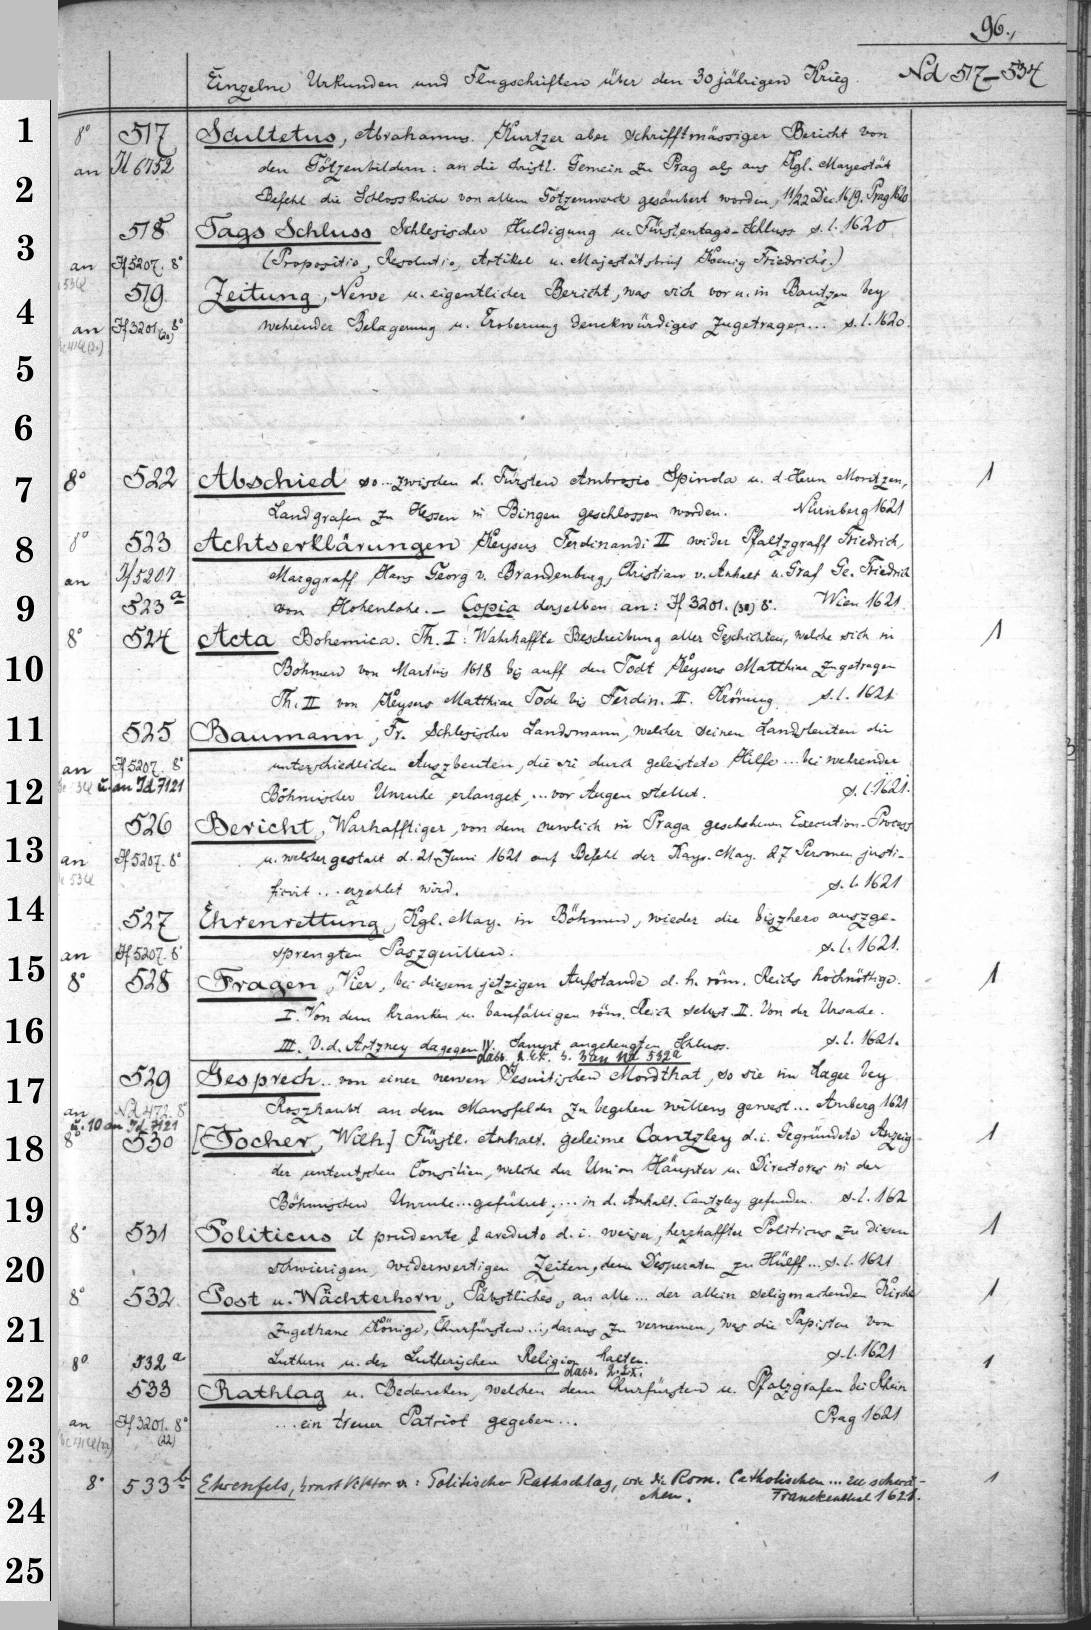 96.,
Einzelne Urkunden und Flugschriften über den 30jährigen Krieg. Nd 517–534
1 8° 517 Scultetus, Abrahamus. Kurtzer aber schrifftmässiger Bericht von
an Il 6752 den Götzenbildern: an die christl. Gemein zu Prag als aus Kgl. Mayestät
2 Befehl die Schlosskirche von allem Götzenwerck gesäubert worden, 11/22 Dec. 1619. Prag
3 518 Tags Schluss Schlesischer Huldigung u. Fürstentags-Schluss s.l. 1620
an If 5207. 8° (Propositio, Resolutio, Artikel u. Majestätsbrief Koenig Friedrichs.)
519 Zeitung, Newe u. eigentlicher Bericht, was sich vor u. in Bautzen bey
4 an If 3201 (20) 8° wehrender Belagerung u. Eroberung denckwürdiges zugetragen... s.l. 1620.
5
6
7 8° 522 Abschied so.. zwischen d. Fürsten Ambrosio Spinola u. d. Herrn Moritzen, 1
Landgrafen zu Hessen in Bingen geschlossen worden. Nürnberg 1621
8 8° 523 Achtserklärungen Keysers Ferdinandi II wider Pfaltzgraff Friedrich,
an If 5207 Marggraff Hans Georg v. Brandenburg, Christian v. Anhalt u. Graf Ge. Friedrich
9 523a von Hohenlohe. – Copia derselben an: If 3201. (30) 8°. Wien 1621
8° 524 Acta Bohemica. Th. I: Wahrhaffte Beschreibung aller Geschichten, welche sich in 1
10 Böhmen von Martius 1618 bis auff den Todt Keysers Matthiae zugetragen
Th. II von Keysers Matthiae Tode bis Ferdin. II. Krönung s.l. 1621
11 525 Baumann, Fr. Schlesischer Landsmann, welcher seinen Landsleuten die
an If 5207. 8° unterschiedlichen Auszbeuten, die sie durch geleistete Hilfe... bei wehrender
12 u. an Id 7121 Böhmischer Unruhe erlanget, ... vor Augen stellet. s.l. 1621.
526 Bericht, Warhafftiger, von dem newlich in Praga geschehenen Execution-Process
13 an If 5207. 8° u. welchergestalt d. 21 Juni 1621 auf Befehl der Kays. May. 27 Personen justi-
ficirt ... erzehlet wird. s.l. 1621
14 527 Ehrenrettung, Kgl. May. in Böhmen, wieder die biszhero auszge-
an If 5207. 8° sprengten Paszquillen. s.l. 1621.
15 8° 528 Fragen, Vier, bei diesem jetzigen Aufstande d. h. röm. Reichs hochnöttige. 1
I. Von dem kranken u. baufälligen röm. Reich selbst. II. Von der Ursache.
16 III. V. d. Artzney dagegen IV. Sampt angehengten Schluss. s.l. 1621.
dass. 2. Ex. s. 3 an Nd 532a
17 529 Gesprech.. von einer newen Jesuitischen Mordthat, so sie im Lager bey
an Nd 472. 8° Roszhaubt an dem Mansfelder zu begehen willens gewest... Amberg 1621
u. 10 an Id 7121
18 8° 530 [Jocher, Wilh.] Fürstl. Anhalt. geheime Cantzley d. i. Gegründete Anzeig 1
der unteutschen Consilien, welche der Union Häupter u. Directores in der
19 Böhmischen Unruhe... geführet, ... in d. Anhalt. Cantzley gefunden. s.l. 162
8° 531 Politicus il prudente & aveduto d. i. weiser, herzhaffter Politicus zu diesen 1
20 schwierigen, widerwertigen Zeiten, dem Desperaten zu Hülff... s.l. 1621
8° 532 Post u. Wächterhorn, Päbstliches, an alle ... der allein seligmachenden Kirche 1
21 zugethane Könige, Churfürsten..., daraus zu vernemen, was die Papisten von
8° 532a Luthern u. der Lutherischen Religion halten. s.l. 1621 1
dass. 2. Ex.
22 533 Rathlag u. Bedencken, welchen dem Churfürsten u. Pfalzgrafen bei Rhein
an If 3201. 8° (22) ... ein treuer Patriot gegeben... Prag 1621
23
8° 533b Ehrenfels, Ernst Viktor v.: Politischer Rathschlag, wie die Rom. Catholischen ... zu schwä- 1
24 chen. Franckenthal 1621.
25